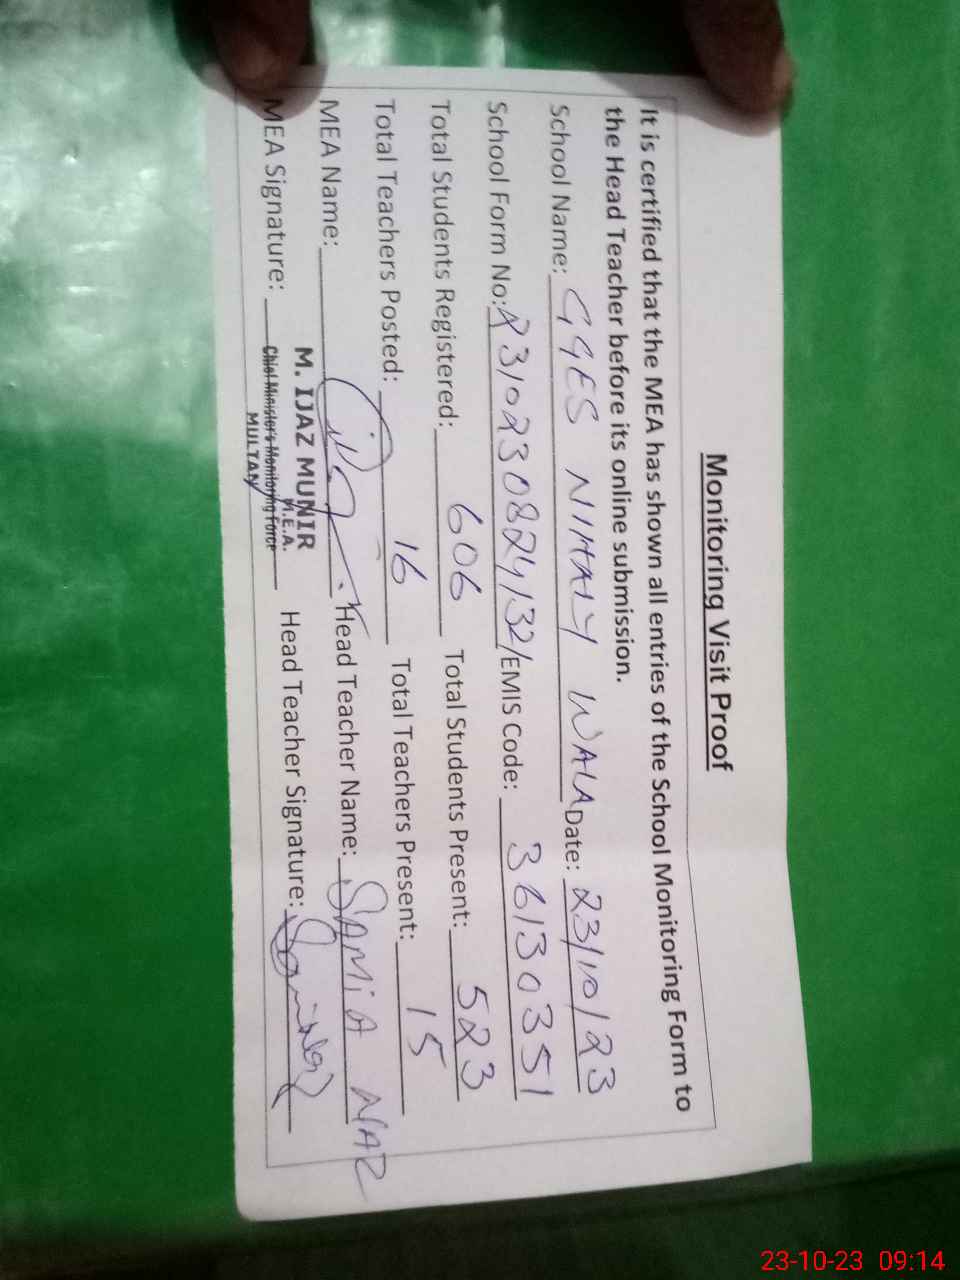 Monitoring Visit Proof
It is certified that the MEA has shown all entries of the School Monitoring Form to
the Head Teacher before its online submission.
School Name: GGES NIHALY WALA Date: 23/10/23
School Form No: R310230824132/EMIS Code: 36130351
Total Students Registered: 606 Total Students Present: 523
Total Teachers Posted: 16 Total Teachers Present: 15
MEA Name: Head Teacher Name: SAMIA NAZ
M. IJAZ MUNIR
M.E.A.
MEA Signature: Chief Minister's Monitoring Force Head Teacher Signature:
MULTAN
23-10-23 09:14